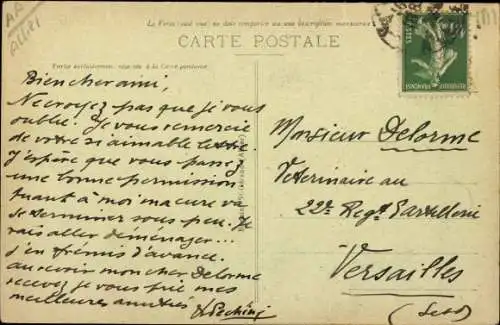 AA
Allier
Le Verso (seul côté) ne doit comporter aucune inscription
CARTE POSTALE
Partie exclusivement réservée à la Correspondance
Bien cher ami,
Ne croyez pas que je vous
oublie. Je vous remercie
de votre si aimable lettre.
J'espère que vous passez
une bonne permission
Quant à moi ma cure va
se terminer sous peu. Je
vais aller déménager...
J'en frémis d'avance.
au revoir mon cher Delorme
recevez je vous prie mes
meilleures amitiés
Monsieur Delorme
Veterinaire au
22e Regt d'artillerie
Versailles
(S et O)